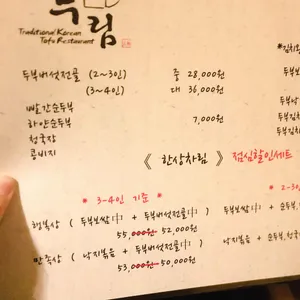 두림
Traditional Korean
Tofu Restaurant
두부버섯전골 (2~3인) 중 28,000원
(3~4인) 대 36,000원
빨간순두부
하얀순두부 7,000원
청국장
콩비지
《 한상차림 》 점심할인세트
* 3-4인 기준 * * 2-3인
행복상 ( 두부보쌈中 + 두부버섯전골中 ) ( 두부보쌈中 +
55,000원 52,000원
만족상 ( 낙지볶음 + 두부버섯전골中 ) 낙지볶음 + 순두부,청국
53,000원 50,000원